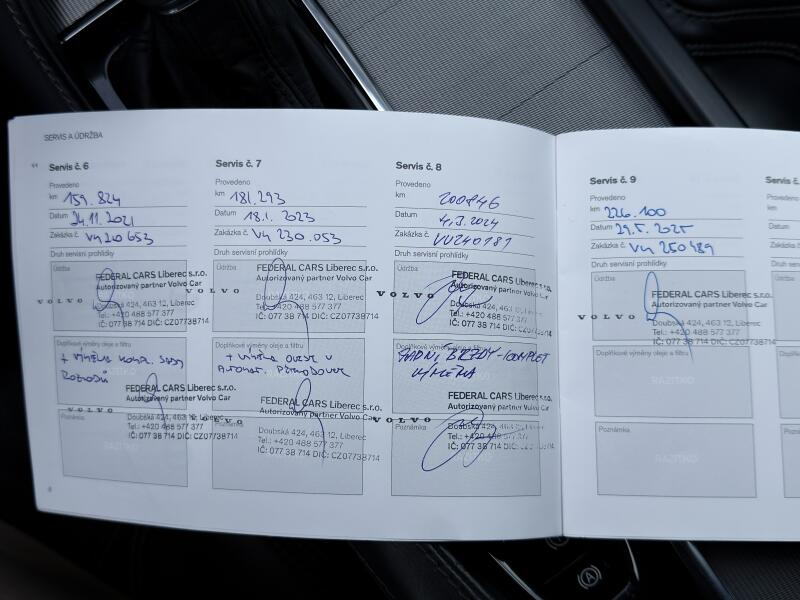 SERVIS A ÚDRŽBA
Servis č. 6
Provedeno
km 159.824
Datum 24.11.2021
Zakázka č. VU210653
Druh servisní prohlídky
Údržba
FEDERAL CARS Liberec s.r.o.
Autorizovaný partner Volvo Car
VOLVO
Doubská 424, 463 12, Liberec
Tel.: +420 488 577 377
IČ: 077 38 714 DIČ: CZ07738714
Doplňkové výměny oleje a filtru
+ VÝMĚNA KOMPL. SADY
ROZVODŮ
FEDERAL CARS Liberec s.r.o.
Autorizovaný partner Volvo Car
VOLVO
Poznámka
Doubská 424, 463 12, Liberec
Tel.: +420 488 577 377
IČ: 077 38 714 DIČ: CZ07738714
8
Servis č. 7
Provedeno
km 181.293
Datum 18.1. 2023
Zakázka č. VU 230.053
Druh servisní prohlídky
Údržba
FEDERAL CARS Liberec s.r.o.
Autorizovaný partner Volvo Car
VOLVO
Doubská 424, 463 12, Liberec
Tel.: +420 488 577 377
IČ: 077 38 714 DIČ: CZ07738714
Doplňkové výměny oleje a filtru
+ VÝMĚNA OLEJE V
AUTOMAT. PŘEVODOVCE
FEDERAL CARS Liberec s.r.o.
Autorizovaný partner Volvo Car
VOLVO
Poznámka
Doubská 424, 463 12, Liberec
Tel.: +420 488 577 377
IČ: 077 38 714 DIČ: CZ07738714
Servis č. 8
Provedeno
km 200846
Datum 4.3.2024
Zakázka č. VU240181
Druh servisní prohlídky
Údržba
FEDERAL CARS Liberec s.r.o.
Autorizovaný partner Volvo Car
VOLVO
Doubská 424, 463 12, Liberec
Tel.: +420 488 577 377
IČ: 077 38 714 DIČ: CZ07738714
Doplňkové výměny oleje a filtru
ZADNÍ BRZDY - KOMPLET
VÝMĚNA
FEDERAL CARS Liberec s.r.o.
Autorizovaný partner Volvo Car
VOLVO
Poznámka
Doubská 424, 463 12, Liberec
Tel.: +420 488 577 377
IČ: 077 38 714 DIČ: CZ07738714
Servis č. 9
Provedeno
km 226.100
Datum 29.5. 2025
Zakázka č. VU 250489
Druh servisní prohlídky
Údržba
FEDERAL CARS Liberec s.r.o.
Autorizovaný partner Volvo Car
VOLVO
Doubská 424, 463 12, Liberec
Tel.: +420 488 577 377
IČ: 077 38 714 DIČ: CZ07738714
Doplňkové výměny oleje a filtru
RAZÍTKO
Poznámka
RAZÍTKO